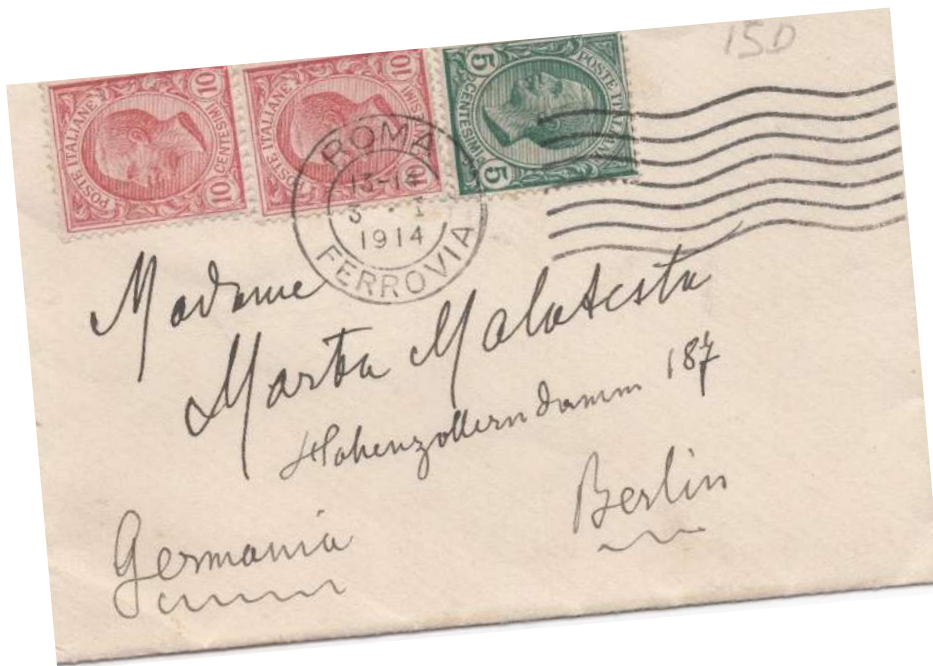 15D
POSTE ITALIANE
10 CENTESIMI 10
POSTE ITALIANE
10 10
5 CENTESIMI 5
POSTE ITALIANE
ROMA
13-14
1914
FERROVIA
Madame
Marta Malatesta
Hohenzollerndamm 187
Berlin
Germania